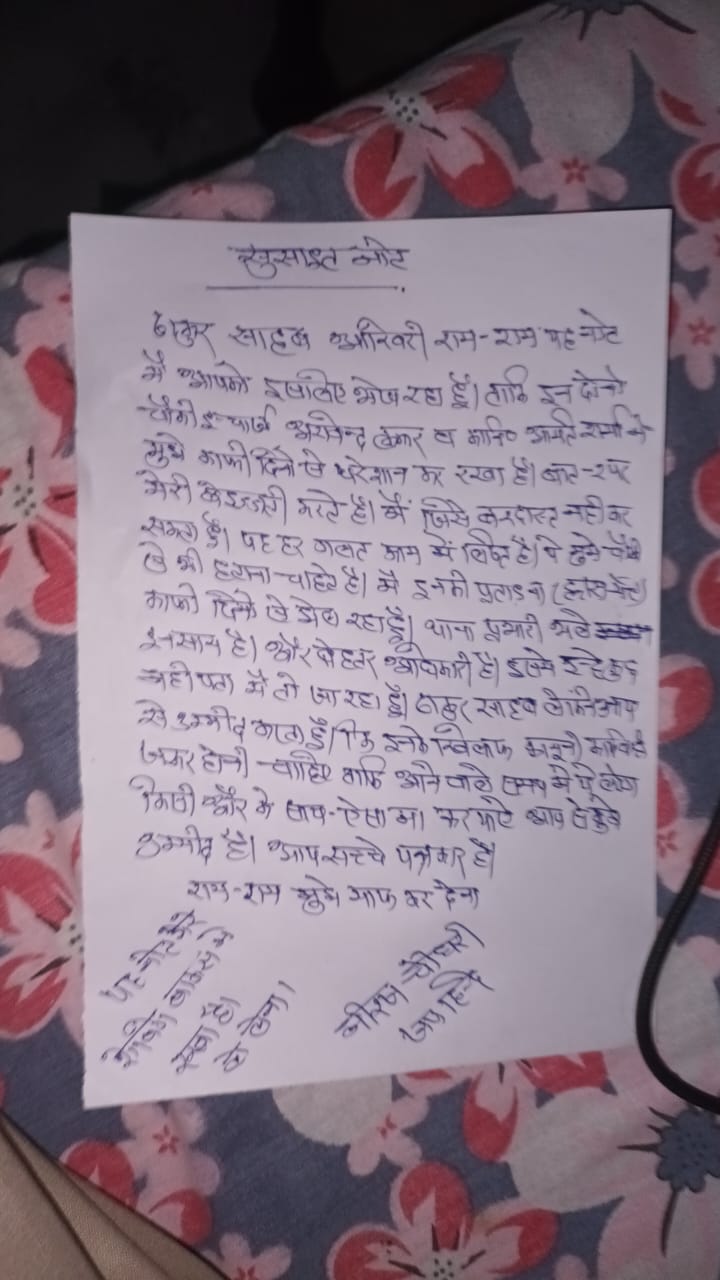 सुसाइट नोट
ठाकुर साहब आखिरी राम-राम यह नोट
मैं आपको इसलिए भेज रहा हूँ। ताकि इन दोनो
चौकी इन्चार्ज व
मुझे काफी दिनो से परेशान कर रखा है। बार-२ पर
मेरी बेइज्जती करते है। मैं जिसे बरदास्त नही कर
सकता हूँ। यह हर गलत काम में लिप्त है। ये मुझे चौकी
से भी हटाना चाहते है। मैं इनकी प्रताडना
काफी दिनो से झेल रहा हूँ। थाना प्रभारी भले
इनसान है। और बेहतर अधिकारी है। इसमे इन्हे कुछ
नही पता मैं तो जा रहा हूँ। ठाकुर साहब लेकिन आप
से उम्मीद करता हूँ। कि इनके खिलाफ कानूनी कार्यवाही
जरूर होनी चाहिए ताकि आने वाले समय मे ये लोग
किसी और के साथ ऐसा ना कर पाये आप से मुझे
उम्मीद है। आप सच्चे पत्रकार है।
राम-राम मुझे माफ कर देना
यह नोट मेरे
के
रखा है।
ले लेना।
जय हिन्द